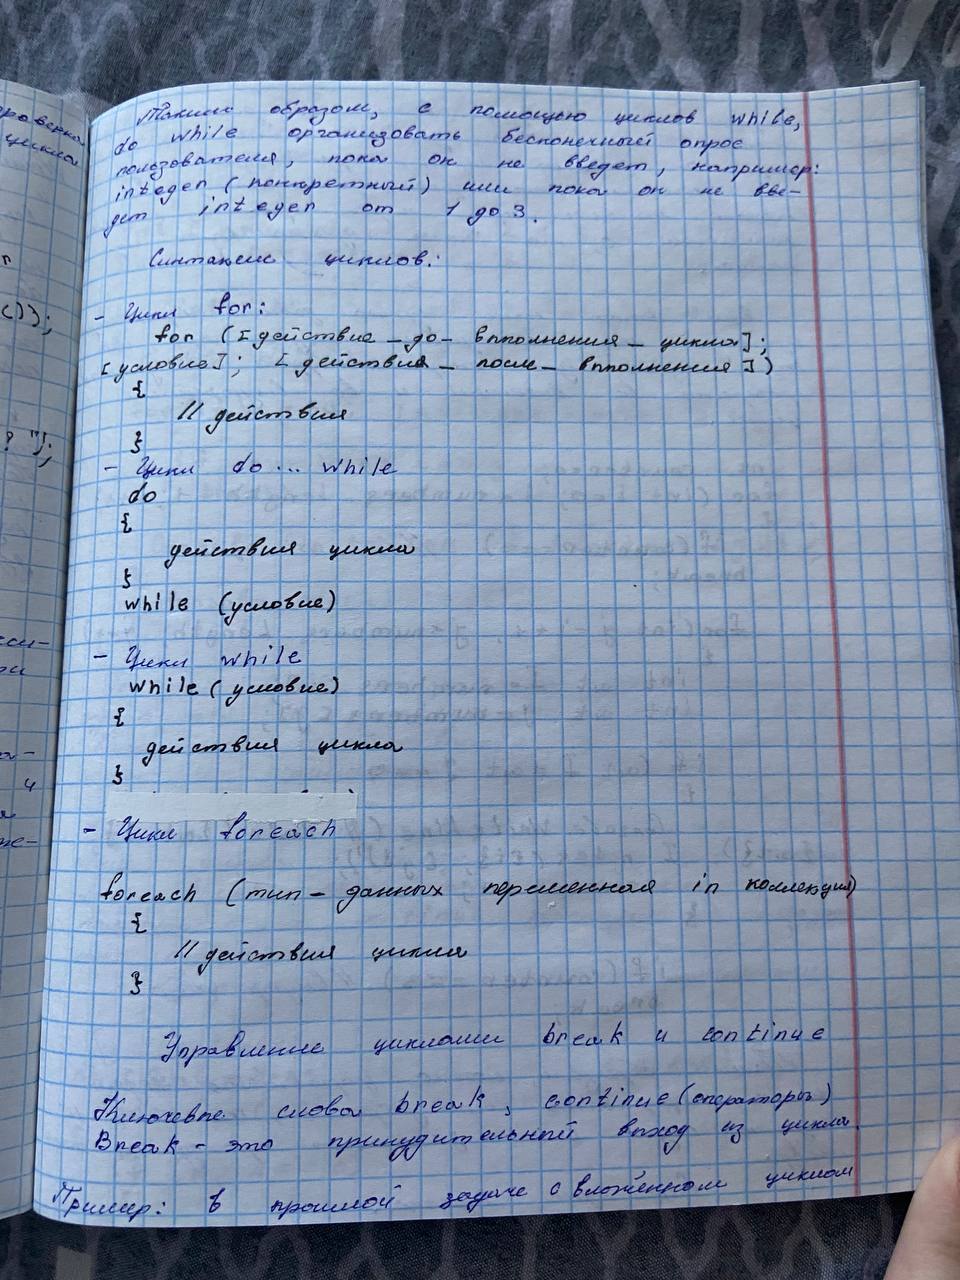 Таким образом, с помощью циклов while,
do while организовать бесконечный опрос
пользователя, пока он не введет, например:
integer (конкретный) или пока он не вве-
дет integer от 1 до 3.
Синтаксис циклов:
- Цикл for:
for ([действие_до_выполнения_цикла];
[условие]; [действия_после_выполнения])
{
// действия
}
- Цикл do ... while
do
{
действия цикла
}
while (условие)
- Цикл while
while (условие)
{
действия цикла
}
- Цикл foreach
foreach (тип_данных переменная in коллекция)
{
// действия цикла
}
Управление циклами break и continue
Ключевые слова break, continue (операторы)
Break - это принудительный выход из цикла.
Пример: в прошлой задаче с вложенном циклом
проверка
цикла
());
? ");